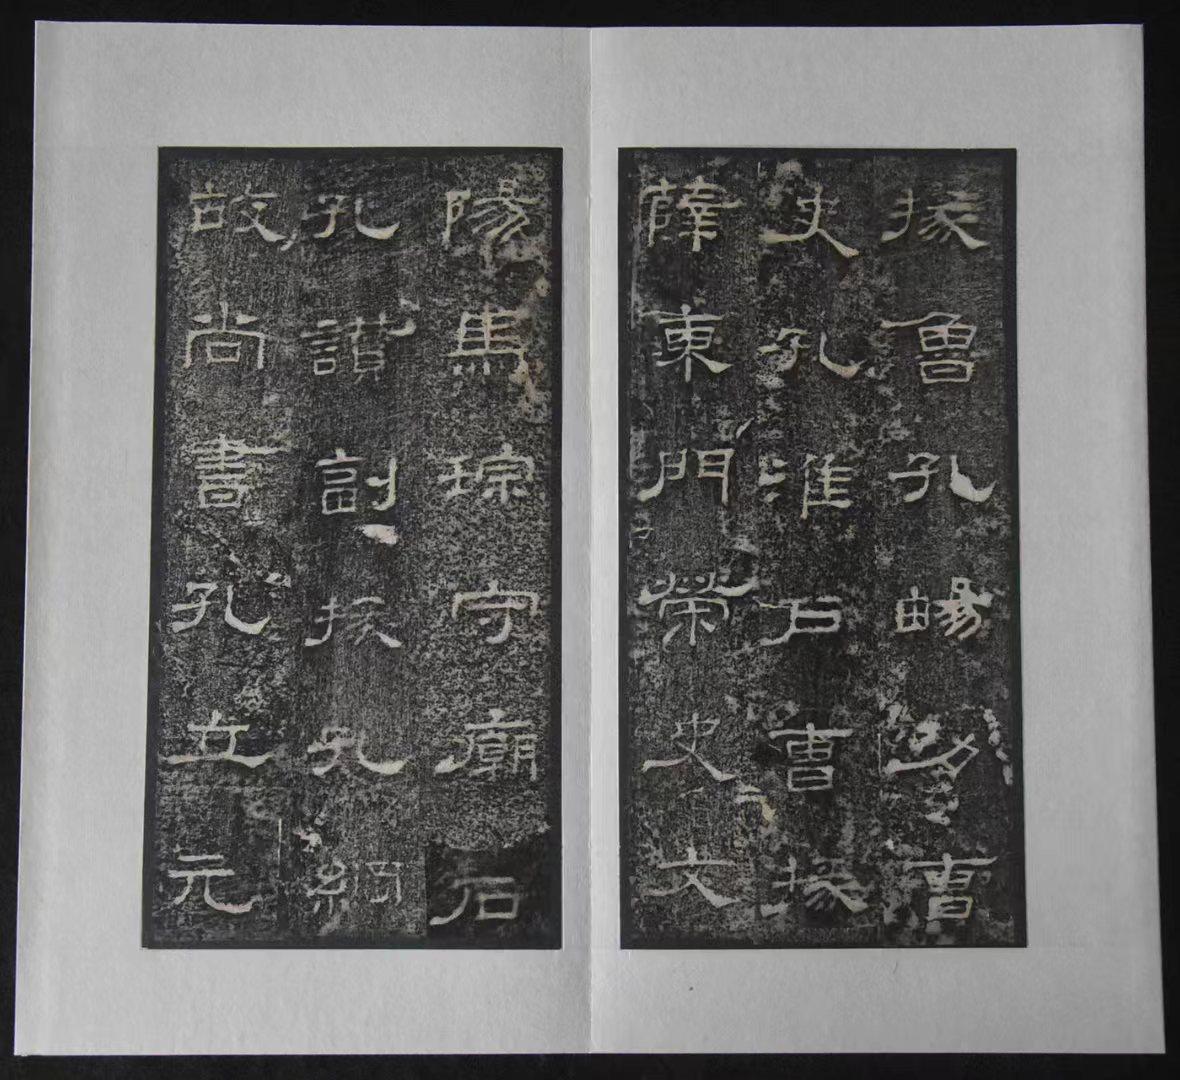 掾魯孔暢功曹
史孔淮戶曹掾
薛東門榮史文
陽馬琮守廟石
孔讃副掾孔綱
故尚書孔立元